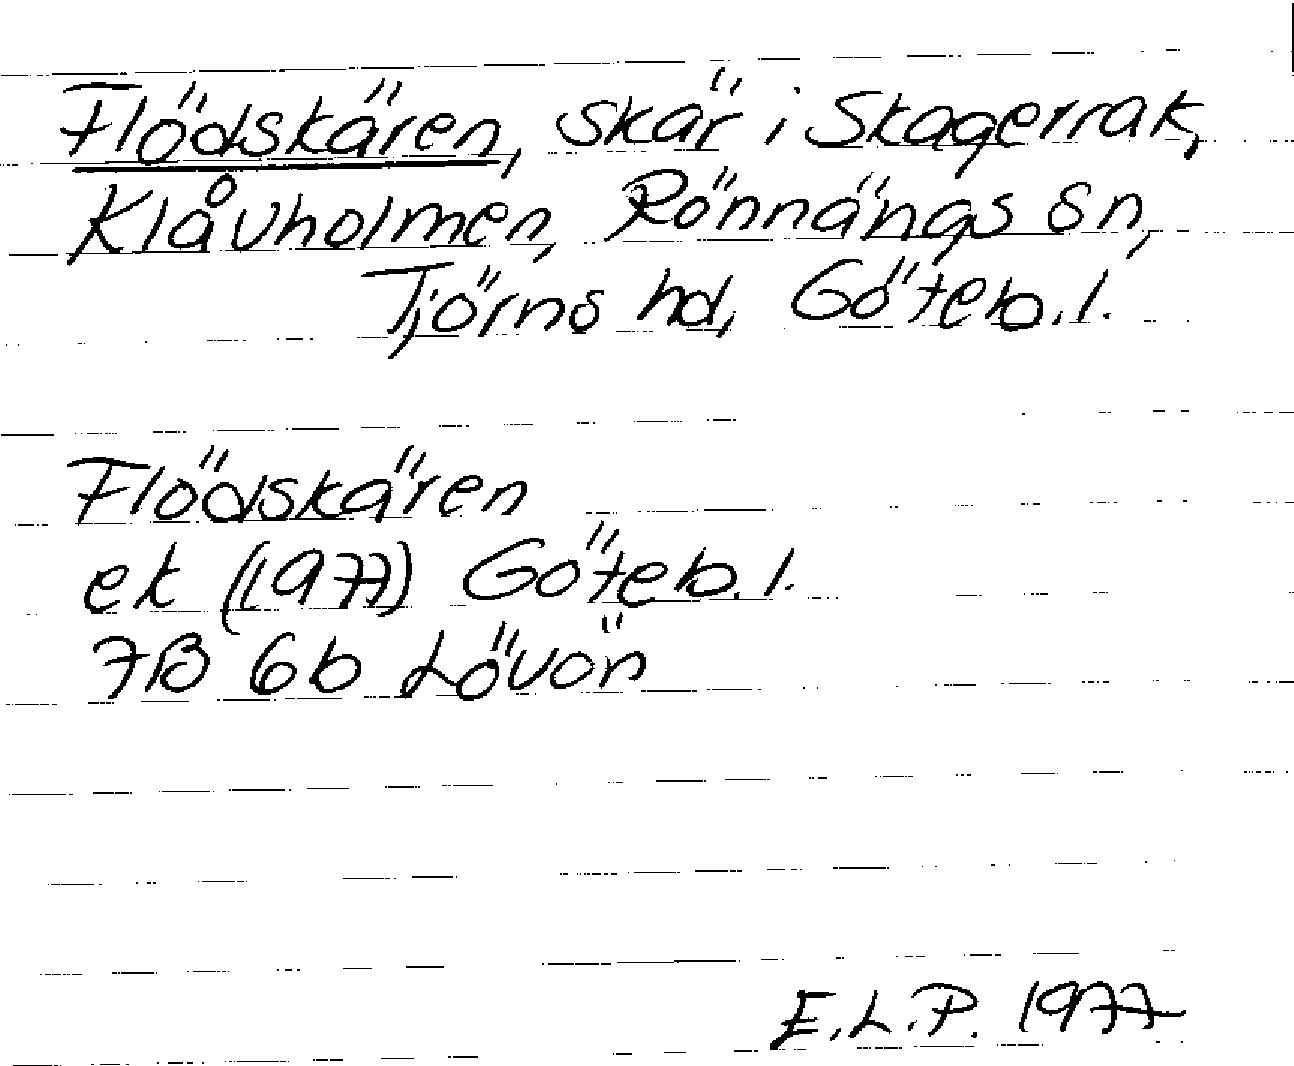 Flödskären, skär i Skagerrak,
Klåvholmen, Rönnängs sn,
Tjörns hd, Göteb. l.
Flödskären
ek (1977) Göteb. l.
7B 6b Lövön
E.L.P. 1977